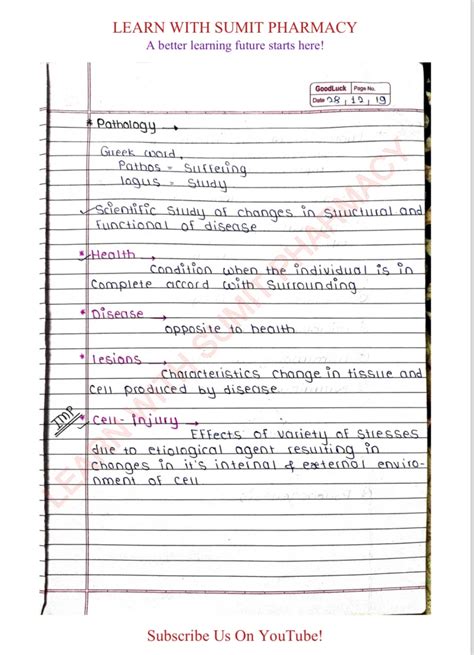 LEARN WITH SUMIT PHARMACY
A better learning future starts here!
GoodLuck Page No.
Date 28, 12, 19
* Pathology →
Greek word,
Pathos = Suffering
logus = Study
Scientific Study of changes in Structural and
functional of disease
* Health →
Condition when the individual is in
Complete accord with Surrounding
* Disease →
opposite to health
* Lesions →
Characteristics change in tissue and
cell produced by disease
IMP
* Cell - injury →
Effects of variety of Stresses
due to etiological agent resulting in
changes in it's internal & external enviro-
nment of cell
LEARN WITH SUMIT PHARMACY
Subscribe Us On YouTube!